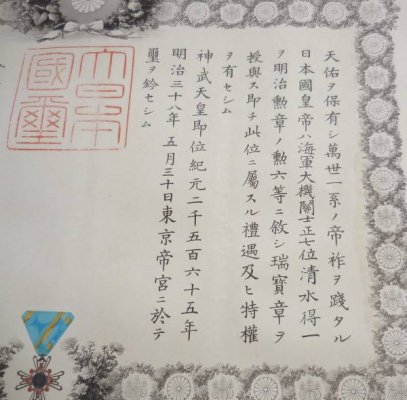 天佑ヲ保有シ萬世一系ノ帝祚ヲ踐タル
日本國皇帝ハ海軍大機關士正七位清水得一
ヲ明治勲章ノ勲六等ニ敘シ瑞寶章ヲ
授與ス即チ此位ニ屬スル禮遇及ヒ特權
ヲ有セシム
神武天皇即位紀元二千五百六十五年
明治三十八年五月三十日東京帝宮ニ於テ
璽ヲ鈐セシム
大日本
國璽